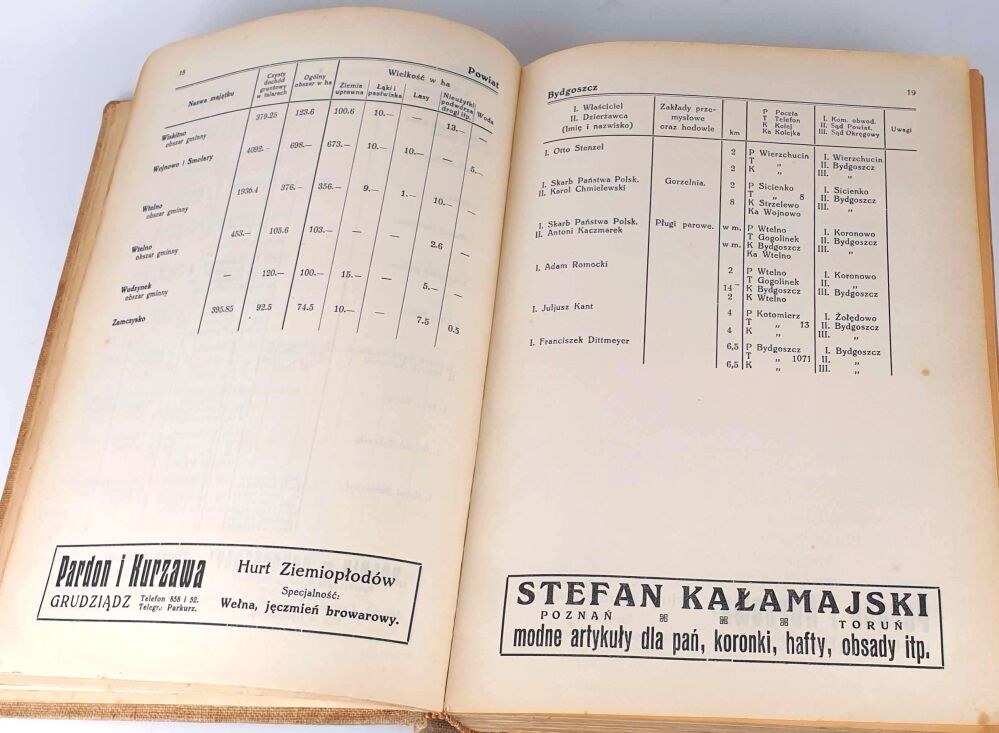 18
Powiat
Nazwa majątku
Czysty dochód gruntowy w talarach
Ogólny obszar w ha
Wielkość w ha
Ziemia uprawna
Łąki i pastwiska
Lasy
Nieużytki podwórza drogi itp.
Woda
Wiskitno 379.25 123.6 100.6 10.— — 13.— —
obszar gminny
Wojnowo i Smolary 4092.— 698.— 673.— 10.— 10.— — 5.—
Wtelno 1935.4 376.— 356.— 9.— 1.— 10.— —
obszar gminny
Wtelno 453.— 105.6 103.— — — 2.6 —
obszar gminny
Wudzynek — 120.— 100.— 15.— — 5.— —
obszar gminny
Zamczysko 395.85 92.5 74.5 10.— — 7.5 0.5
Pardon i Kurzawa
GRUDZIĄDZ
Telefon 858 i 52.
Telegr.: Parkurz.
Hurt Ziemiopłodów
Specjalność:
Wełna, jęczmień browarowy.
Bydgoszcz
19
I. Właściciel
II. Dzierżawca
(Imię i nazwisko)
Zakłady prze-
mysłowe
oraz hodowle
km
P Poczta
T Telefon
K Kolej
Ka Kolejka
I. Kom. obwod.
II. Sąd Powiat.
III. Sąd Okręgowy
Uwagi
I. Otto Stenzel 2 P Wierzchucin I. Wierzchucin
T „ II. Bydgoszcz
2 K „ III. „
I. Skarb Państwa Polsk. Gorzelnia. 2 P Sicienko I. Sicienko
II. Karol Chmielewski T „ 8 II. Bydgoszcz
8 K Strzelewo III. „
Ka Wojnowo
I. Skarb Państwa Polsk. Pługi parowe. w m. P Wtelno I. Koronowo
II. Antoni Kaczmarek T Gogolinek II. Bydgoszcz
w m. K Bydgoszcz III. „
Ka Wtelno
I. Adam Romocki 2 P Wtelno I. Koronowo
T Gogolinek II. „
14 K Bydgoszcz III. Bydgoszcz
2 K Wtelno
I. Juljusz Kant 4 P Kotomierz I. Żołędowo
T „ 13 II. Bydgoszcz
4 K „ III. „
I. Franciszek Dittmeyer 6,5 P Bydgoszcz I. Bydgoszcz
T „ 1071 II. „
6,5 K „ III. „
STEFAN KAŁAMAJSKI
POZNAŃ TORUŃ
modne artykuły dla pań, koronki, hafty, obsady itp.